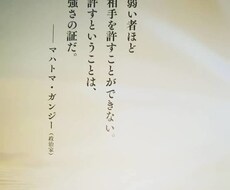 弱い者ほど
相手を許すことができない。
許すということは、
強さの証だ。
── マハトマ・ガンジー（政治家）